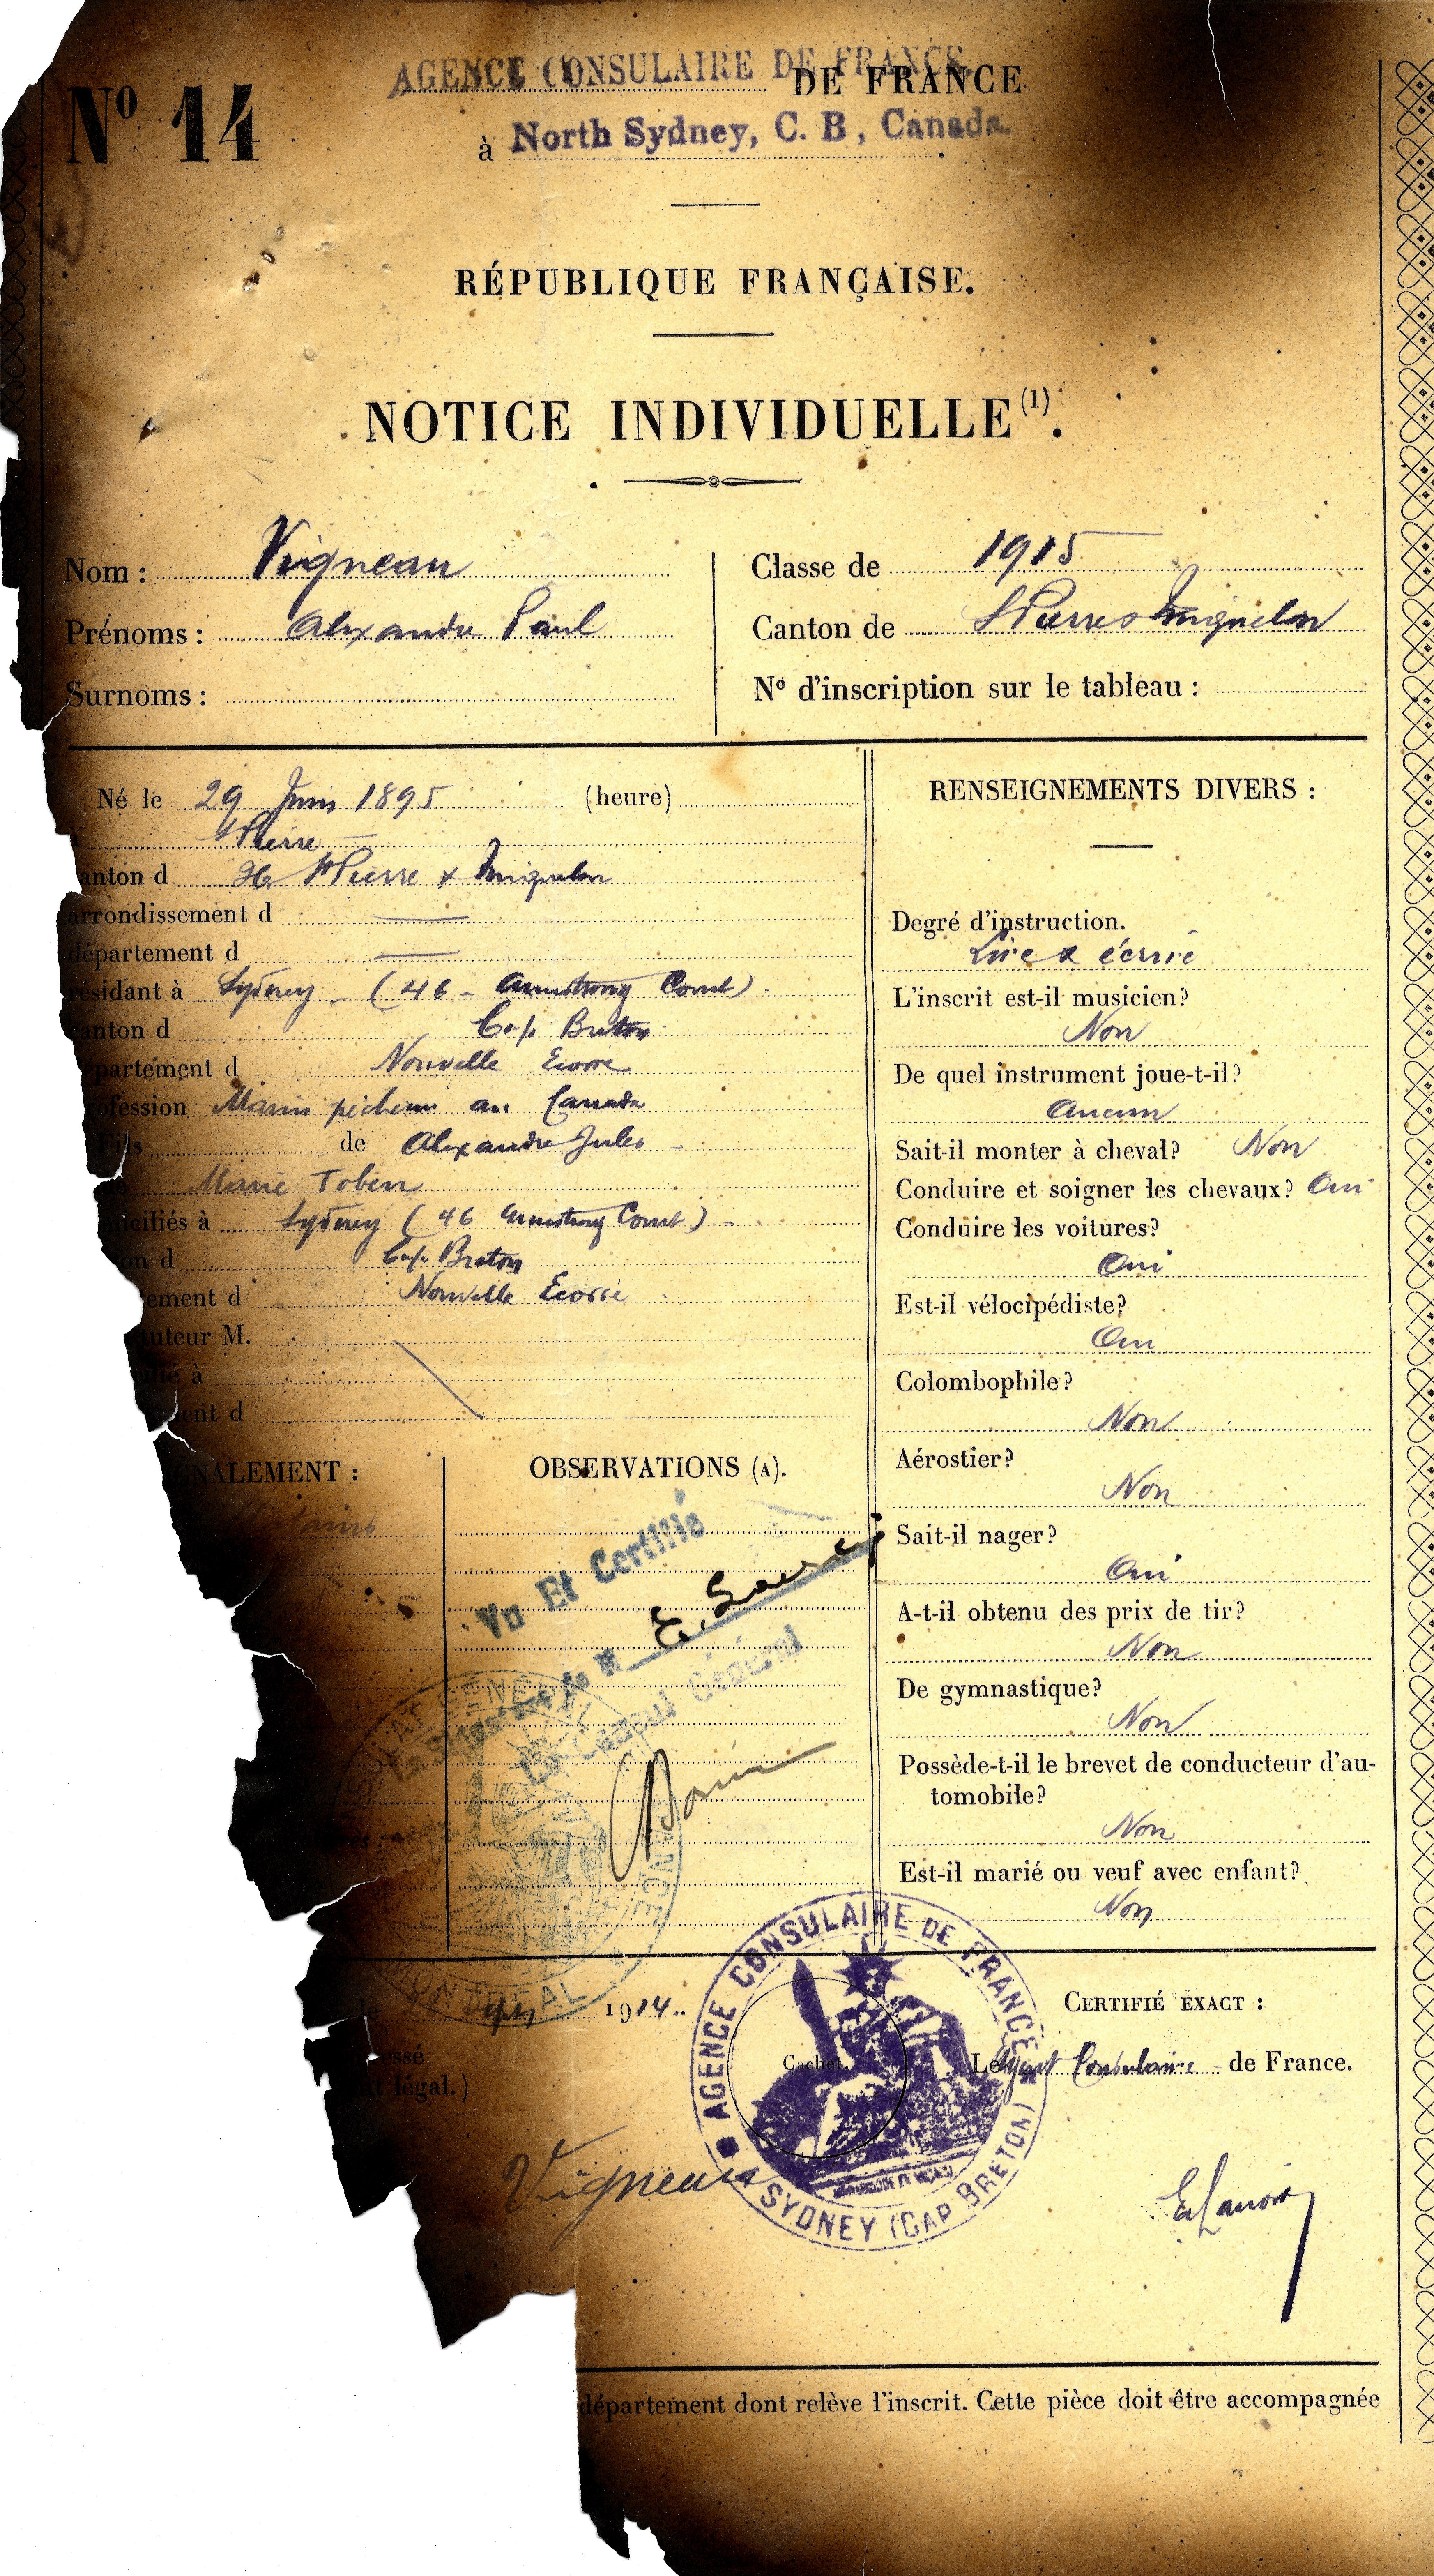 Nº 14
AGENCE CONSULAIRE DE FRANCE.
DE FRANCE
à North Sydney, C. B, Canada.
RÉPUBLIQUE FRANÇAISE.
NOTICE INDIVIDUELLE (1).
Nom : Vigneau
Prénoms : Alexandre Paul
Surnoms :
Classe de 1915
Canton de St Pierre & Miquelon
Nº d'inscription sur le tableau :
Né le 29 Juin 1895 (heure)
St Pierre
anton d St Pierre & Miquelon
arrondissement d
département d
résidant à Sydney (46 - Armstrong Court)
canton d Cap Breton
département d Nouvelle Ecosse
ofession Marin pêcheur au Canada
Fils de Alexandre Jules
Marie Tobin
miciliés à Sydney (46 Armstrong Court)
on d Cap Breton
ement d Nouvelle Ecosse
uteur M.
lié à
ent d
GNALEMENT :
OBSERVATIONS (A).
Vu Et Certifié
la signature de M
Le Consul Général
RENSEIGNEMENTS DIVERS :
Degré d'instruction.
Lire & écrire
L'inscrit est-il musicien?
Non
De quel instrument joue-t-il?
Aucun
Sait-il monter à cheval? Non
Conduire et soigner les chevaux? Oui
Conduire les voitures?
Oui
Est-il vélocipédiste?
Oui
Colombophile?
Non
Aérostier?
Non
Sait-il nager?
Oui
A-t-il obtenu des prix de tir?
Non
De gymnastique?
Non
Possède-t-il le brevet de conducteur d'au-
tomobile?
Non
Est-il marié ou veuf avec enfant?
Non
MONTREAL
le 1914.
essé
t légal.)
Vigneau
AGENCE CONSULAIRE DE FRANCE
SYDNEY (CAP BRETON)
Cachet.
CERTIFIÉ EXACT :
Le Agent Consulaire de France.
département dont relève l'inscrit. Cette pièce doit être accompagnée